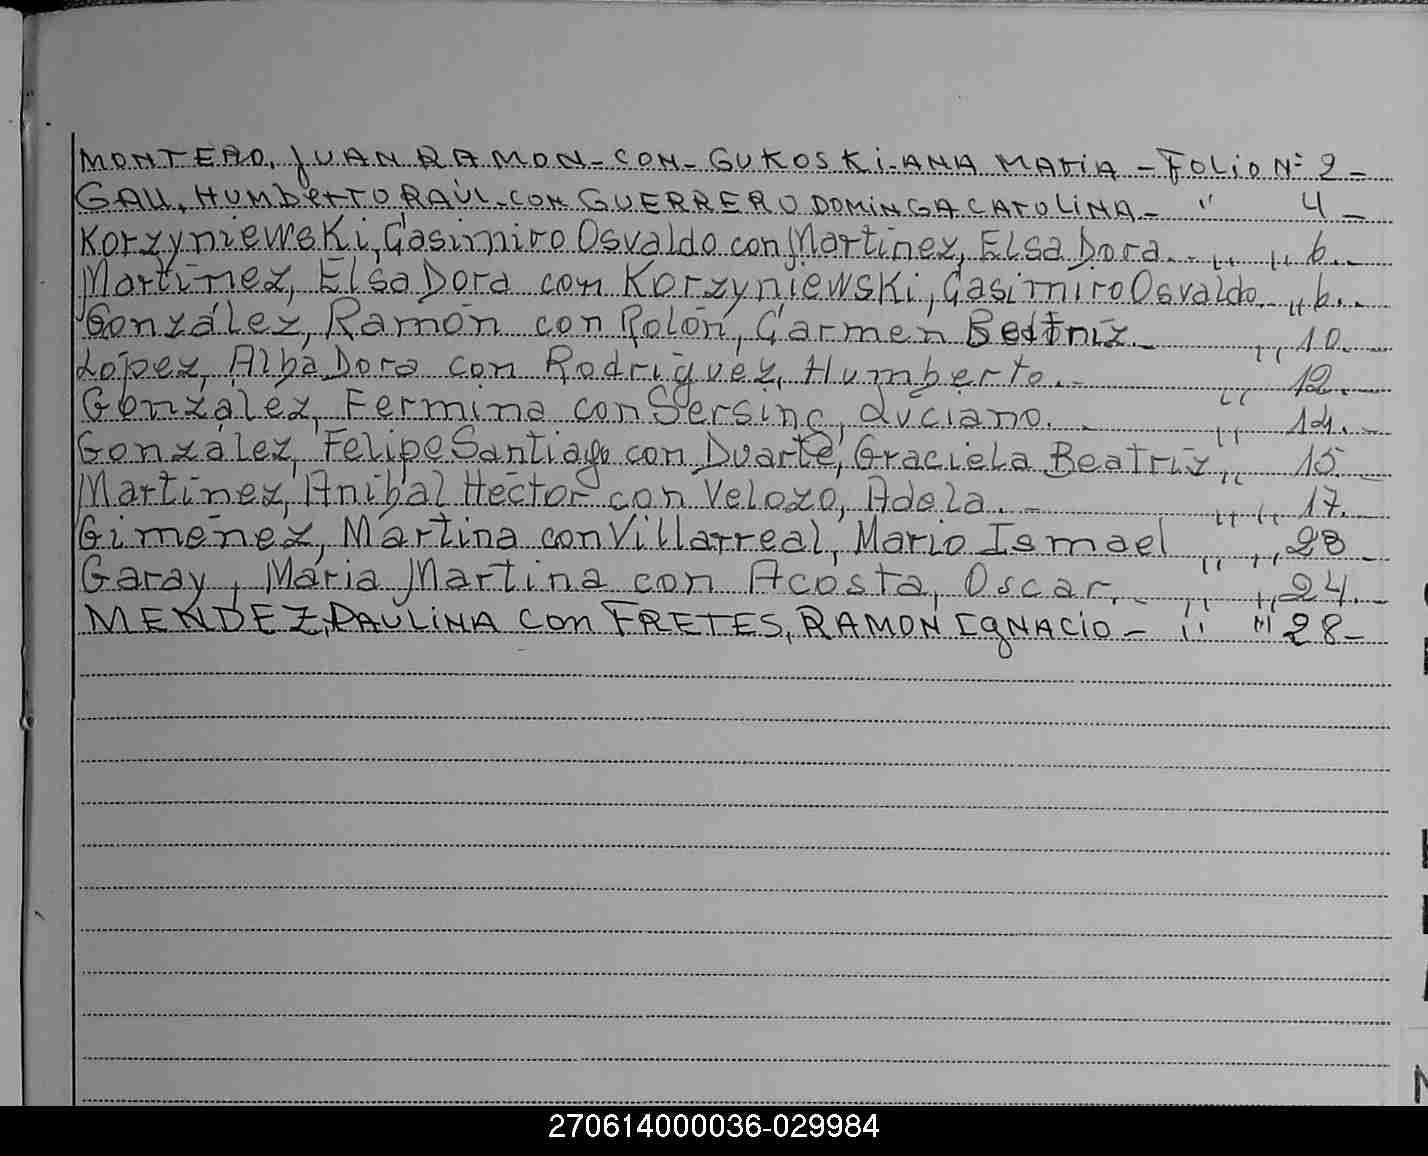 MONTERO, JUAN RAMON - CON - GUKOSKI - ANA MARIA - FOLIO Nº 2 -
GALL, HUMBERTO RAÚL - CON GUERRERO DOMINGA CAROLINA - " 4 -
Korzyniewski, Casimiro Osvaldo con Martinez, Elsa Dora. - " " 6. -
Martínez, Elsa Dora con Korzyniewski, Casimiro Osvaldo " 6. -
González, Ramón con Rolón, Carmen Beatriz. - " 10. -
López, Alba Dora con Rodríguez, Humberto. - " 12. -
González, Fermina con Sersing, Luciano. - " 14. -
González, Felipe Santiago con Duarte, Graciela Beatriz " 15 -
Martínez, Aníbal Héctor con Velozo, Adela. - " " 17. -
Gimenez, Martina con Villarreal, Mario Ismael " " 23 -
Garay, María Martina con Acosta, Oscar. - " " 24. -
MENDEZ, PAULINA CON FRETES, RAMON IGNACIO - " " 28 -
270614000036-029984